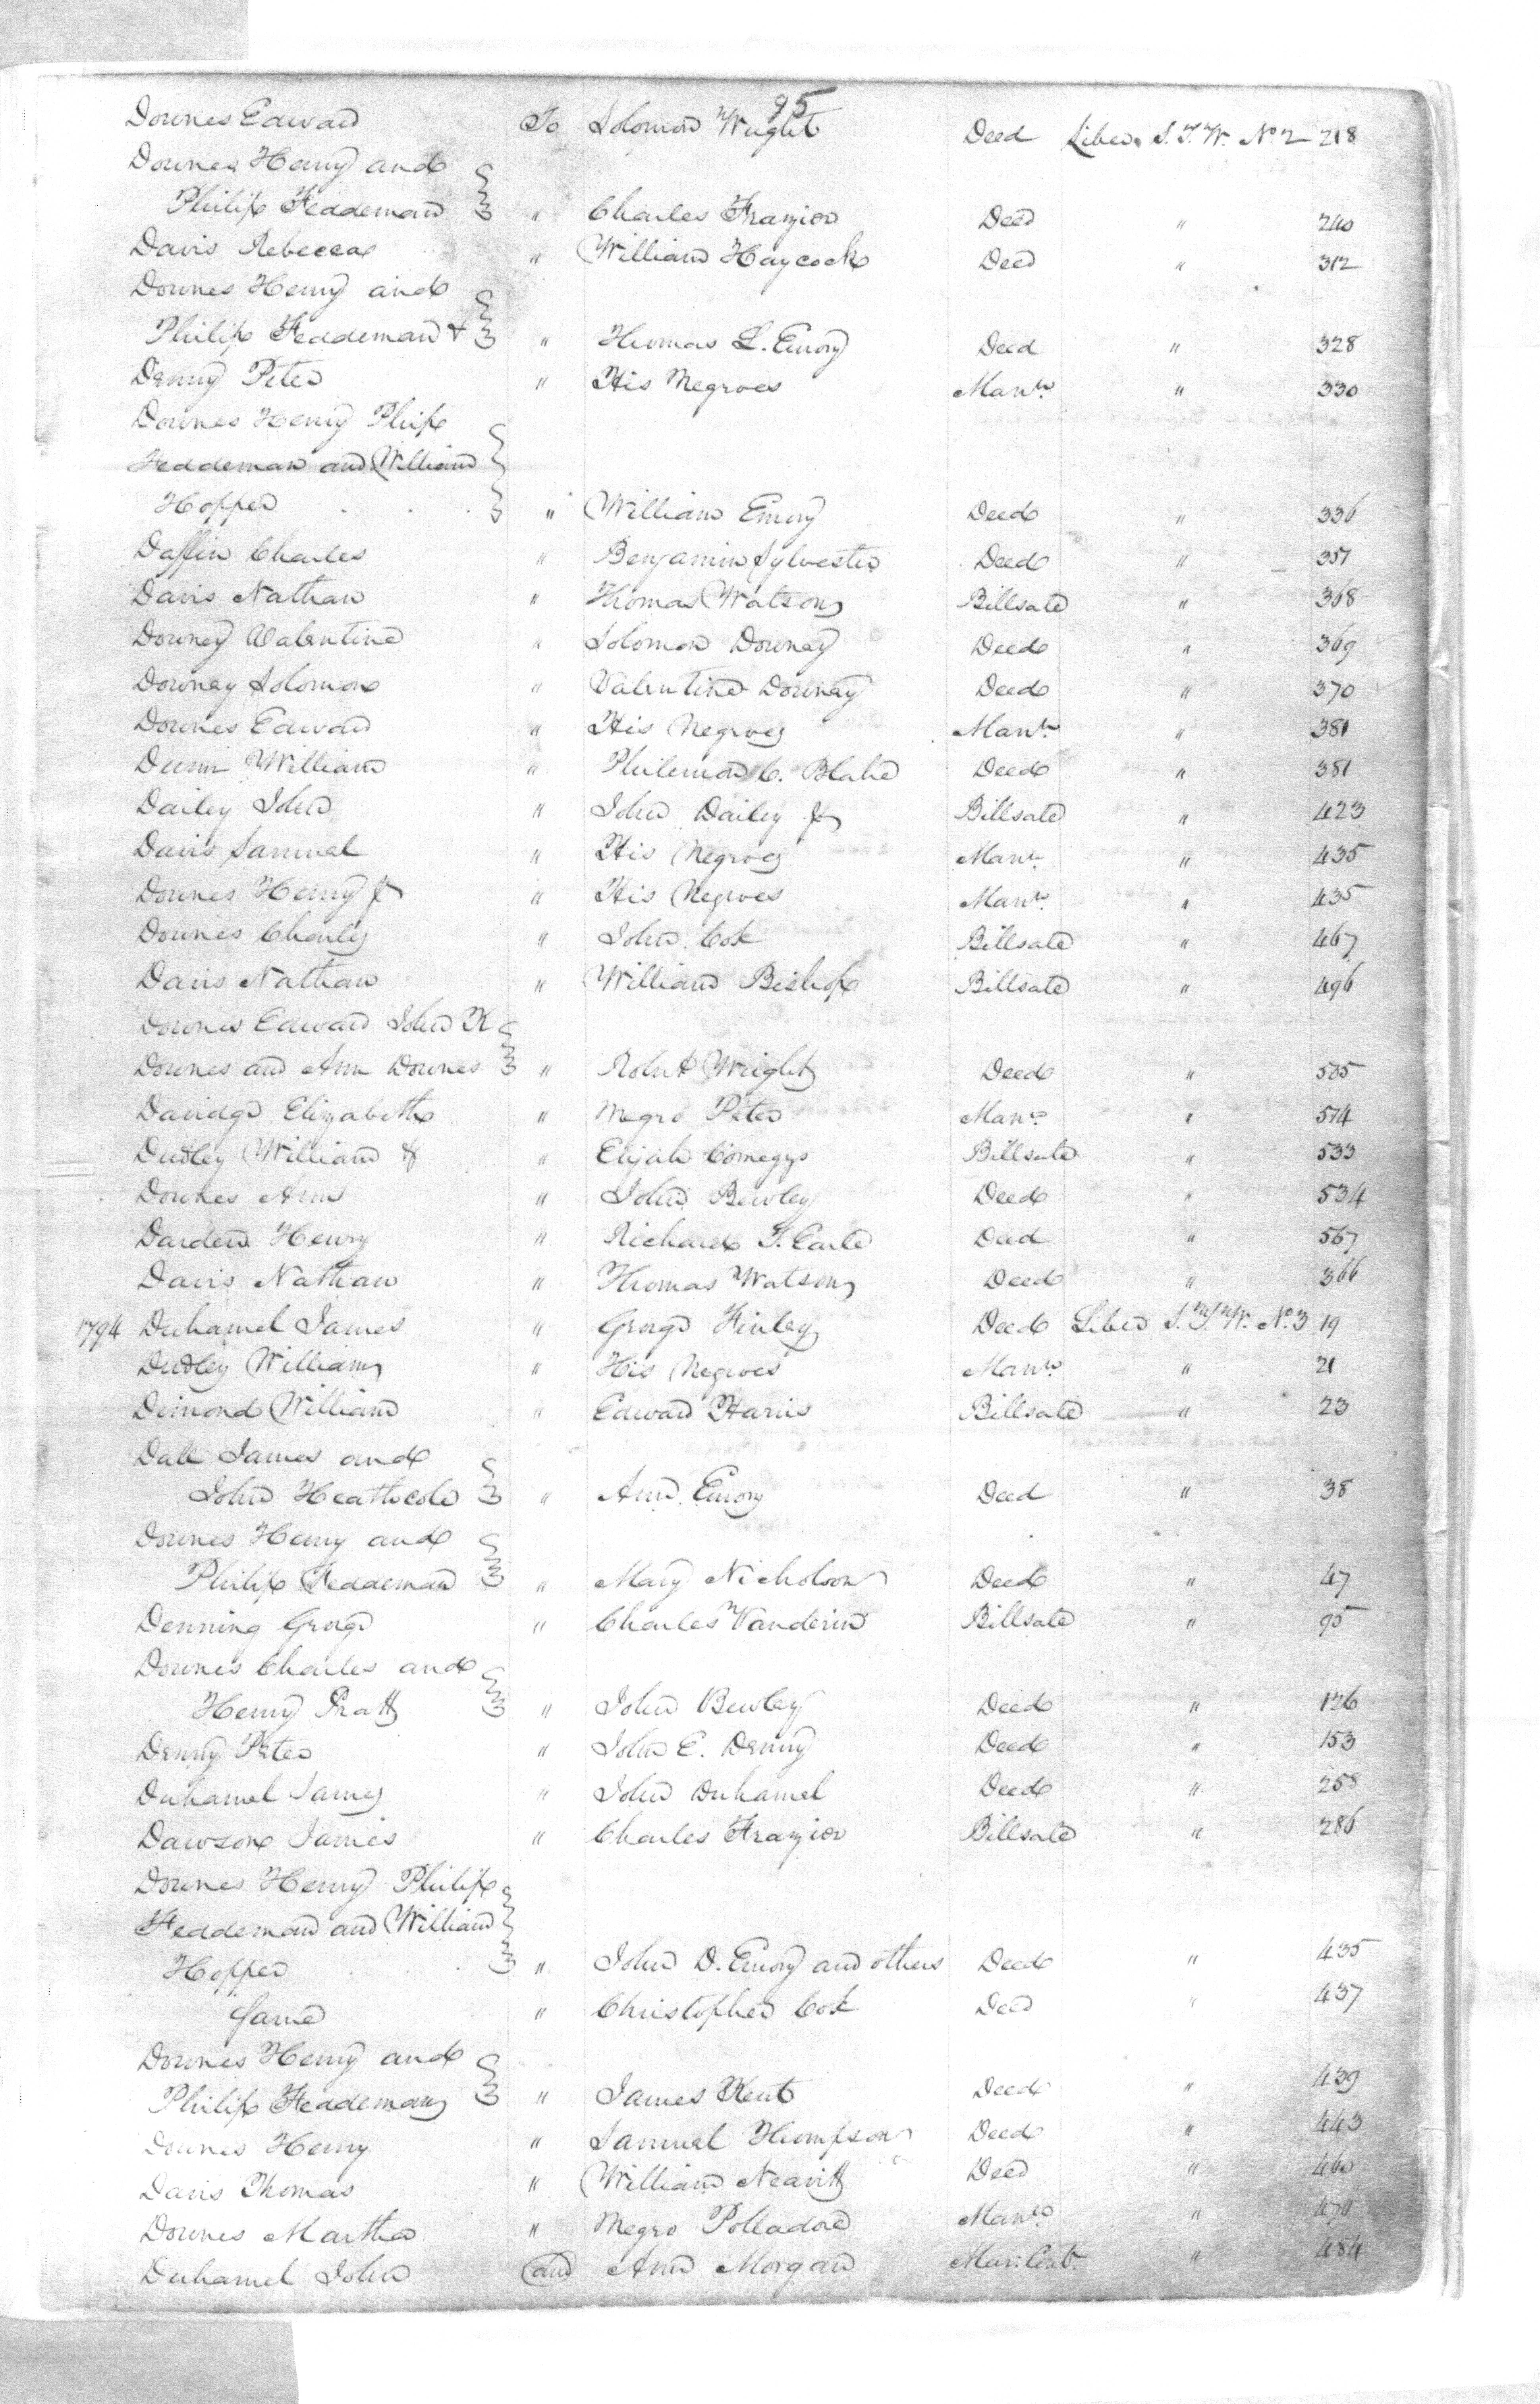 95
Downes Edward To Solomon Wright Deed Liber S. T. W. No. 2 218
Downes Henry and
Philip Feddeman " Charles Frazier Deed " 240
Davis Rebecca " William Haycock Deed " 312
Downes Henry and
Philip Feddeman & " Thomas L. Emory Deed " 328
Denny Peter " His Negroes Mann. " 330
Downes Henry Philip
Feddeman and William
Hopper " William Emory Deed " 336
Daffin Charles " Benjamin Sylvester Deed " 351
Davis Nathan " Thomas Watson Billsale " 368
Downey Valentine " Solomon Downey Deed " 369
Downey Solomon " Valentine Downey Deed " 370
Downes Edward " His Negroes Mann. " 381
Dunn William " Philemon C. Blake Deed " 381
Dailey John " John Dailey Jr Billsale " 423
Davis Samuel " His Negroes Mann. " 435
Downes Henry Jr " His Negroes Mann. " 435
Downes Charles " John Cox Billsale " 467
Davis Nathan " William Bishop Billsale " 496
Downes Edward John K
Downes and Ann Downes " Robert Wright Deed " 505
Davidge Elizabeth " Negro Peter Mann. " 514
Dudley William Jr " Elijah Comegys Billsale " 533
Downes Ann " John Bewley Deed " 534
Darden Henry " Richard T. Earle Deed " 567
Davis Nathan " Thomas Watson Deed " 366
1794 Duhamel James " George Finley Deed Liber S. T. W. No. 3 19
Dudley William " His Negroes Mann. " 21
Dimond William " Edward Harris Billsale " 23
Dall James and
John Heathcote " Ann Emory Deed " 38
Downes Henry and
Philip Feddeman " Mary Nicholson Deed " 47
Denning George " Charles Vanderin Billsale " 95
Downes Charles and
Henry Pratt " John Bewley Deed " 126
Denny Peter " John E. Denny Deed " 153
Duhamel James " John Duhamel Deed " 258
Dawson James " Charles Frazier Billsale " 286
Downes Henry Philip
Feddeman and William
Hopper " John D. Emory and others Deed " 435
Same " Christopher Cox Deed " 437
Downes Henry and
Philip Feddeman " James Kent Deed " 439
Downes Henry " Samuel Thompson Deed " 443
Davis Thomas " William Neavitt Deed " 460
Downes Martha " Negro Polladore Mann. " 470
Duhamel John and Ann Morgan Mar: Cont. " 484